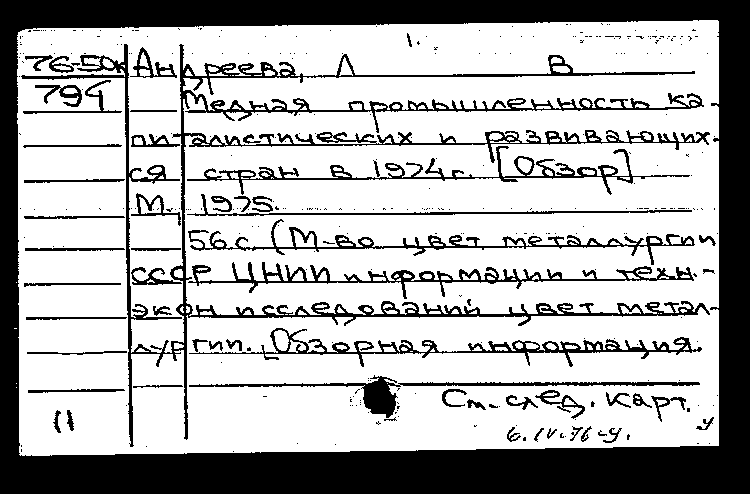 1.
76-50к Андреева, Л В
794 Медная промышленность ка-
питалистических и развивающих-
ся стран в 1974г. [Обзор].
М., 1975.
56 с. (М-во цвет металлургии
СССР ЦНИИ информации и техн.-
экон исследований цвет метал-
лургии. Обзорная информация.
См. след. карт.
11 6.IV-76-у. у